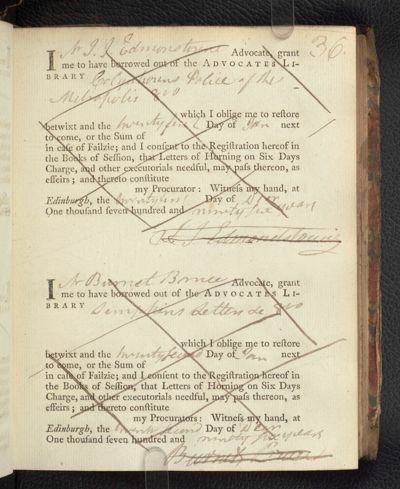 36.
I N J J Edmonstoune Advocate, grant
me to have borrowed out of the ADVOCATES LI-
BRARY Colquhouns Police of the
Metropolis 8vo
which I oblige me to restore
betwixt and the twenty first Day of Jan next
to come, or the Sum of
in case of Failzie; and I consent to the Registration hereof in
the Books of Session, that Letters of Horning on Six Days
Charge, and other executorials needful, may pass thereon, as
effeirs; and thereto constitute
my Procurator: Witness my hand, at
Edinburgh, the twenty first Day of Decr
One thousand seven hundred and ninety five years
J J Edmondstoune
I N Burnet Bruce Advocate, grant
me to have borrowed out of the ADVOCATES LI-
BRARY Letters &c 8vo
which I oblige me to restore
betwixt and the twenty second Day of Jan next
to come, or the Sum of
in case of Failzie; and I consent to the Registration hereof in
the Books of Session, that Letters of Horning on Six Days
Charge, and other executorials needful, may pass thereon, as
effeirs; and thereto constitute
my Procurators: Witness my hand, at
Edinburgh, the twenty second Day of Decr
One thousand seven hundred and ninety five years
Burnet Bruce